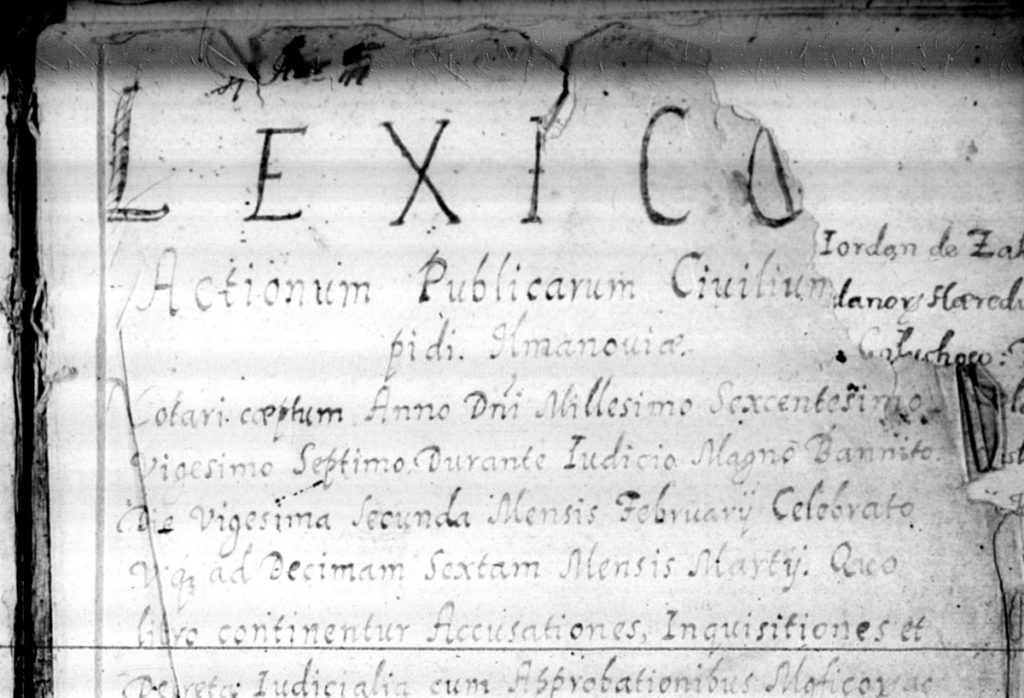 LEXICO
Actionum Publicarum Ciuilium
pidi. Ilmanouiæ.
Iordan de Zak
Cotari cæptum Anno Dñi Millesimo Sexcentesimo
Vigesimo Septimo, Durante Iudicio Magno Bannito:
Die Vigesima Secunda Mensis Februarij Celebrato
Vsq ad Decimam Sextam Mensis Martij. Quo
libro continentur Accusationes, Inquisitiones et
Decreta Iudicialia cum Approbationibus